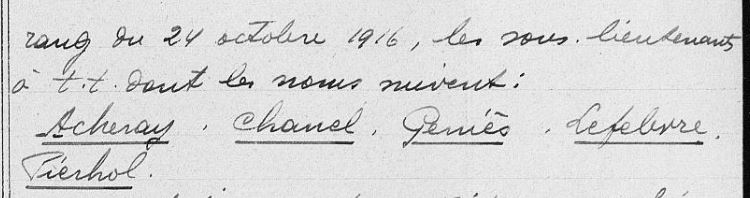 rang du 24 octobre 1916, les sous-lieutenants
à t.t. dont les noms suivent :
Acheray. Chanel. Geniès. Lefebvre.
Pierhol.